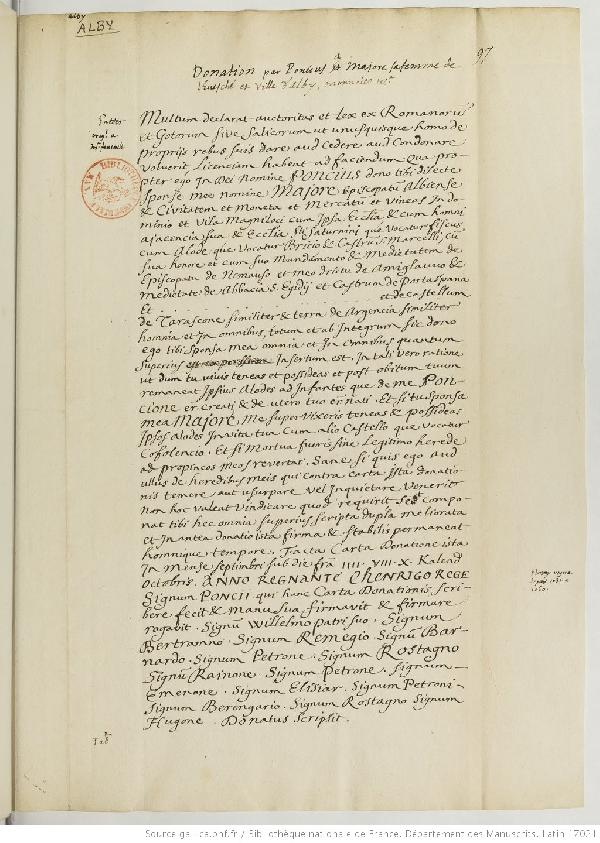 alby
ALBY
97
Donation par Poncius a Majore sa femme de
et Ville d'Alby,
Multum declarat auctoritas et lex ex Romanorum
et Gotorum sive Salicorum ut unusquisque homo de
proprijs rebus suis dare aud Cedere aud Condonare
Voluerit Licenciam habeat ad faciendum Qua pro-
pter ego In Dei Nomine PONCIUS dono tibi dilecte
Sponse mee nomine MAJORE Episcopatū Albiense
& Civitatem et Moneta et Mercatū et Vineas In do-
minio et Vila Magniloci cum Ipsa Ecclia & cum homni
ajacencia sua & Ecclia St Saturnini que Vocatur fiscus
cum Alode que Vocatur Bricio & Castrū Marcelli cū
sua honore et cum suo Mandamento & Medietatem de
Episcopatu de Nemauso et meo dritu de Amiglauvo &
medietate de Abbacia S. Egidij et Castrum de Portaspana
Et et de castellum
de Tarascone similiter & terra de Argencia similiter
homnia et In omnibus totum et ab Integrum sic dono
ego tibi Sponsa mea omnia et In Omnibus quantum
superius Insertum est. In tali vero ratione
ut dum tu vivis teneas et possideas et post obitum tuum
remaneat Ipsius Alodes ad Infantes que de me PON-
CIONE er Creati & de utero tuo er nati. Et si tu Sponsa
mea MAJORE, Me super Vixeris teneas & Possideas
Ipsos Alodes In vita tua Cum alio Castello que Vocatur
Cosolencio. Et si Mortua fueris sine Legitimo herede
ad propincos meos revertat. Sane si quis ego aud
ullus de heredibus meis qui Contra Carta Ista donatio-
nis temere aut usurpare vel Inquietare Venerit
Non hoc valeat Vindicare quod requirit Sed Compo-
nat tibi hec omnia superius scripta dupla meliorata
et In antea donatio ista firma & stabilis permaneat
homnique tempore. Facta Carta Donatione ista
In Mense septimbri sub die fra IIII. VIII. X. Kalend
Octobris. ANNO REGNANTE EHENRIGO REGE
Signum PONCII qui hanc Carta Donationis scri-
bere fecit & manu sua firmavit & firmare
rogavit. Signū Willelmo patri suo. Signum
Bertramno. Signum Remegio. Signū Bar-
nardo. Signum Petrone. Signum Rostagno
Signū Rainone. Signum Petrone. Signum
Emenone. Signum Elisiar. Signum Petroni-
Signum Berengario. Signum Rostagno Signum
Hugone. Donatus scripsit.
Source gallica.bnf.fr / Bibliothèque nationale de France. Département des Manuscrits. Latin 17021